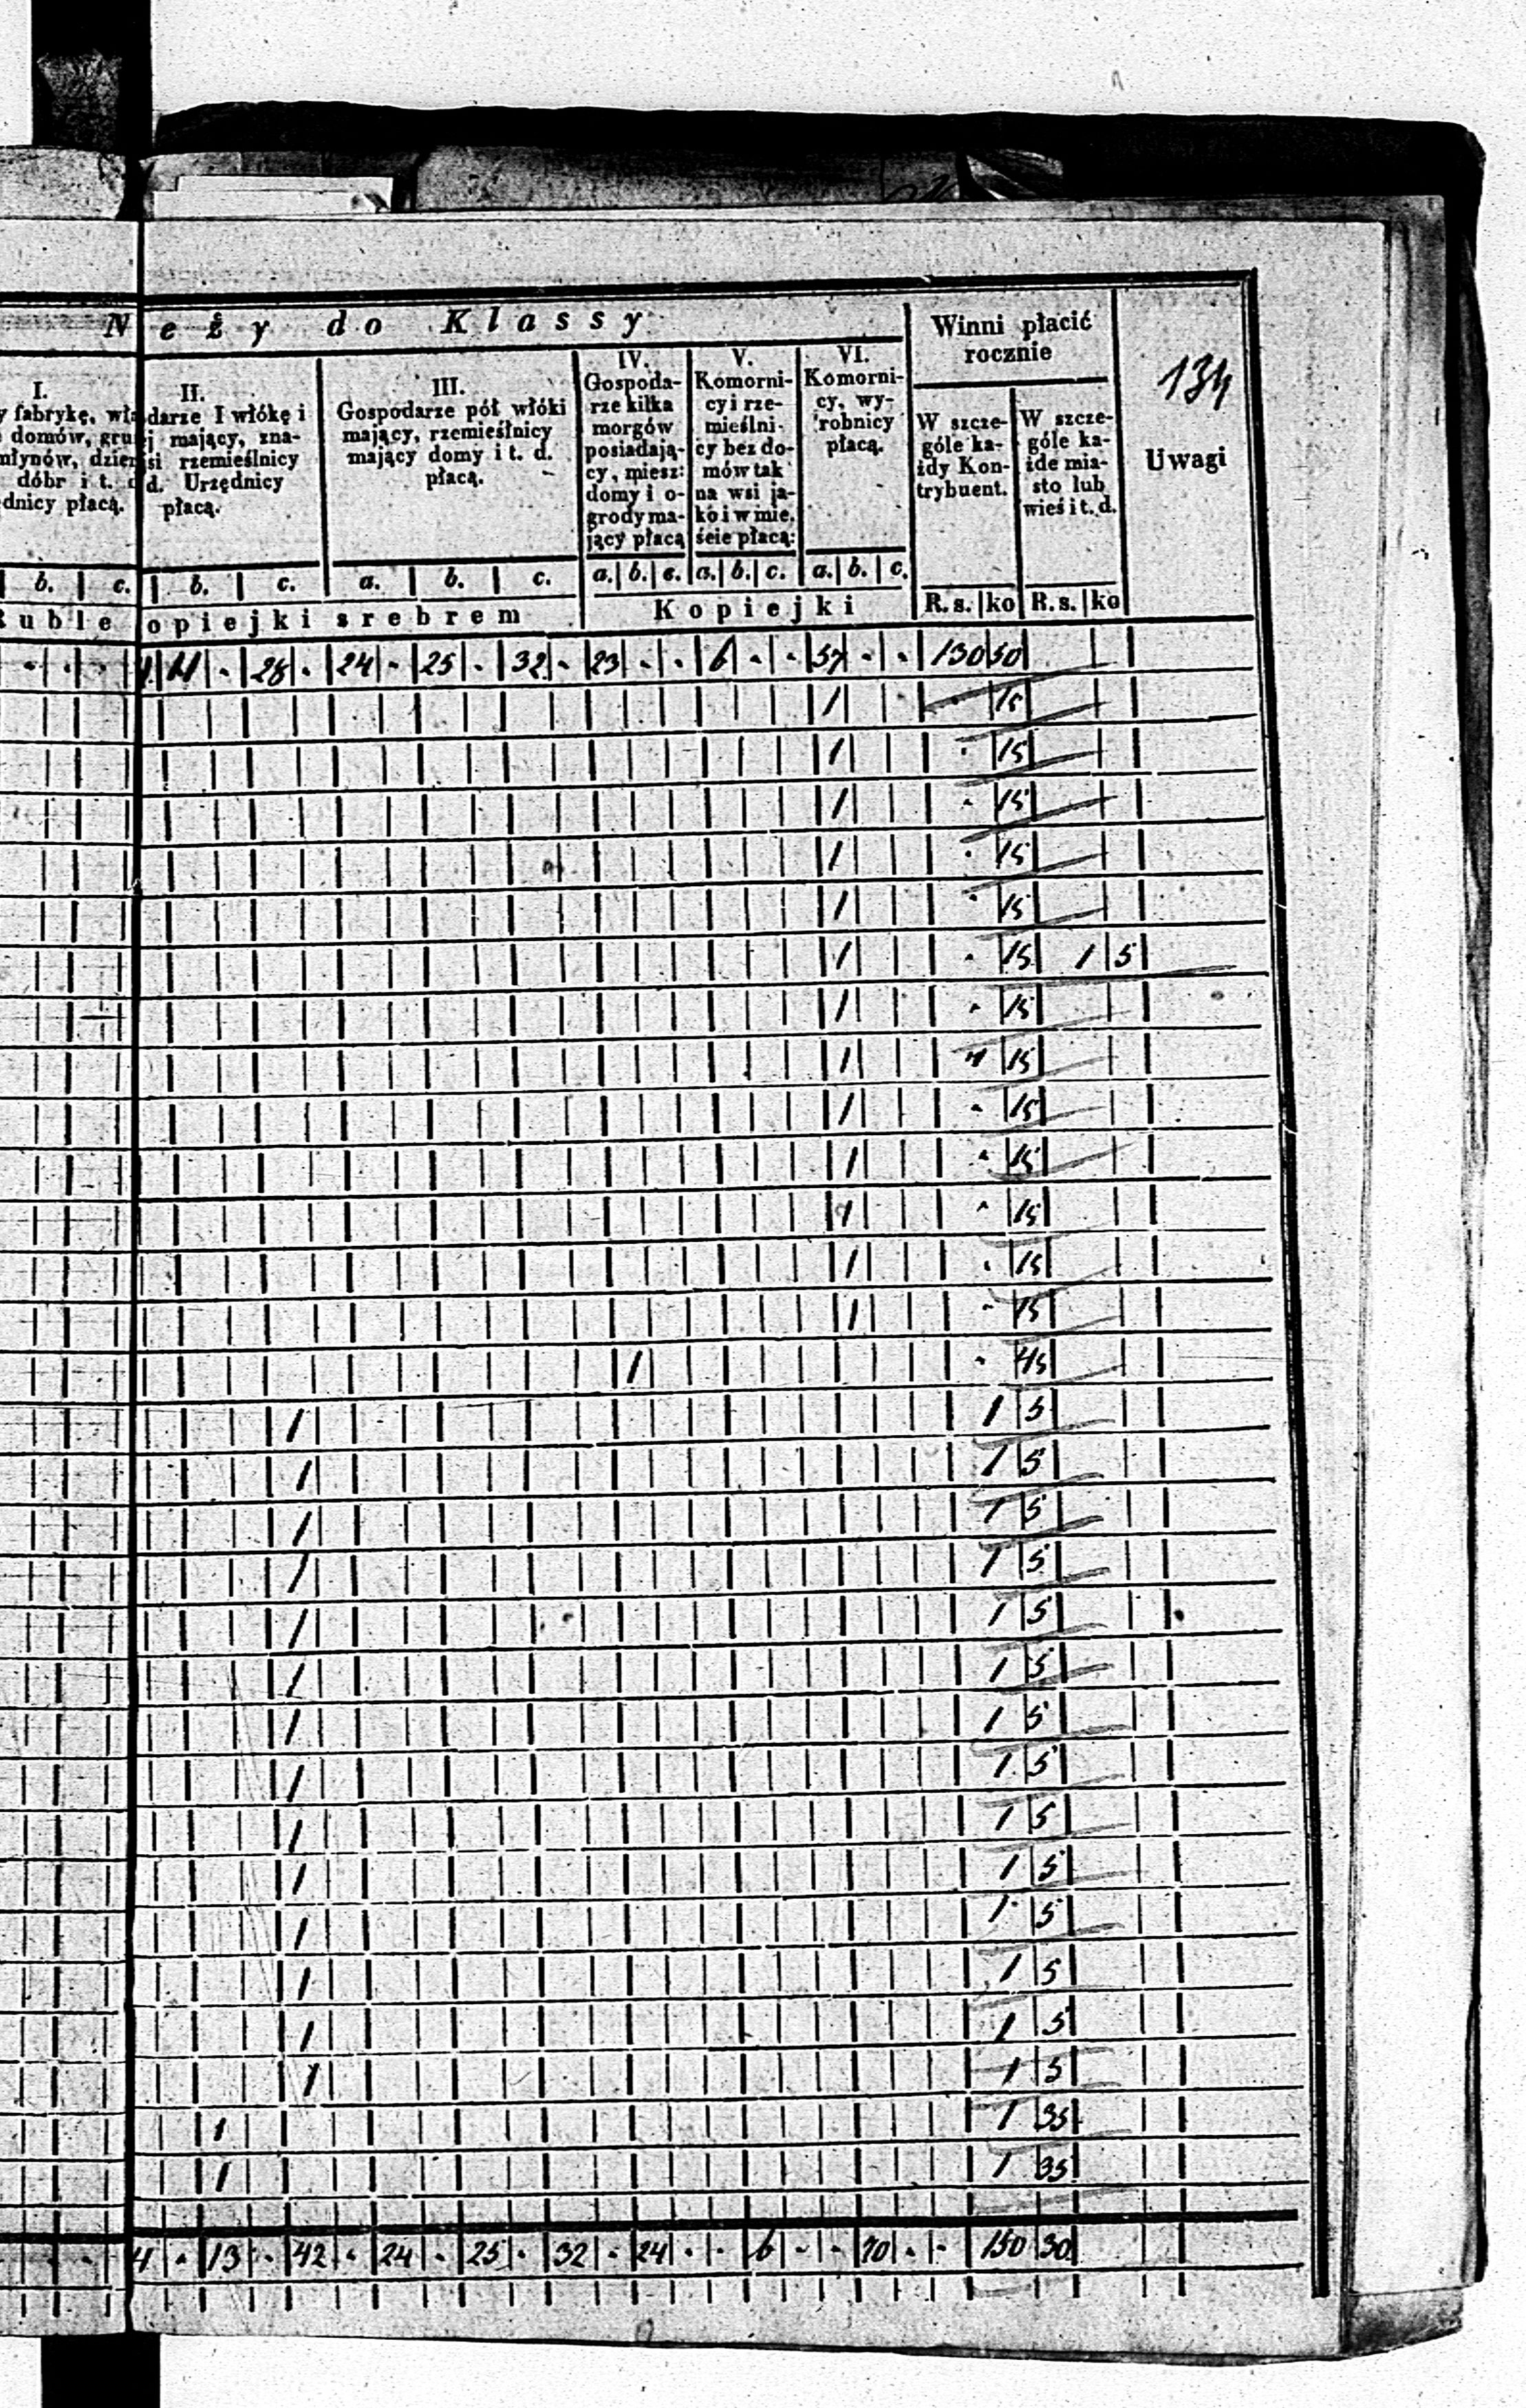 N eży do Klassy
Winni płacić
rocznie
134
Uwagi
I.
fabrykę, wła
domów, gru
młynów, dzier
dóbr i t. d
dnicy płacą.
II.
darze I włókę i
j mający, zna-
si rzemieślnicy
d. Urzędnicy
płacą.
III.
Gospodarze pół włóki
mający, rzemieślnicy
mający domy i t. d.
płacą.
IV.
Gospoda-
rze kilka
morgów
posiadają-
cy, miesz:
domy i o-
grody ma-
jący płacą
V.
Komorni-
cy i rze-
mieślni-
cy bez do-
mów tak
na wsi ja-
ko i w mie.
ście płacą:
VI.
Komorni-
cy, wy-
robnicy
płacą.
W szcze-
góle ka-
idy Kon-
trybuent.
W szcze-
góle ka-
ide mia-
sto lub
wieś i t. d.
b. c. b. c. a. b. c. a. b. c. a. b. c. a. b. c.
uble opiejki srebrem Kopiejki R. s. ko R. s. ko
11 28 24 25 32 23 6 57 130 50
1 15
1 15
1 15
1 15
1 15
1 15 1 5
1 15
1 15
1 15
1 15
1 15
1 15
1 15
1 45
1 1 5
1 1 5
1 1 5
1 1 5
1 1 5
1 1 5
1 1 5
1 1 5
1 1 5
1 1 5
1 1 5
1 1 5
1 1 5
1 1 5
1 1 35
1 1 35
4 13 42 24 25 32 24 6 70 150 30